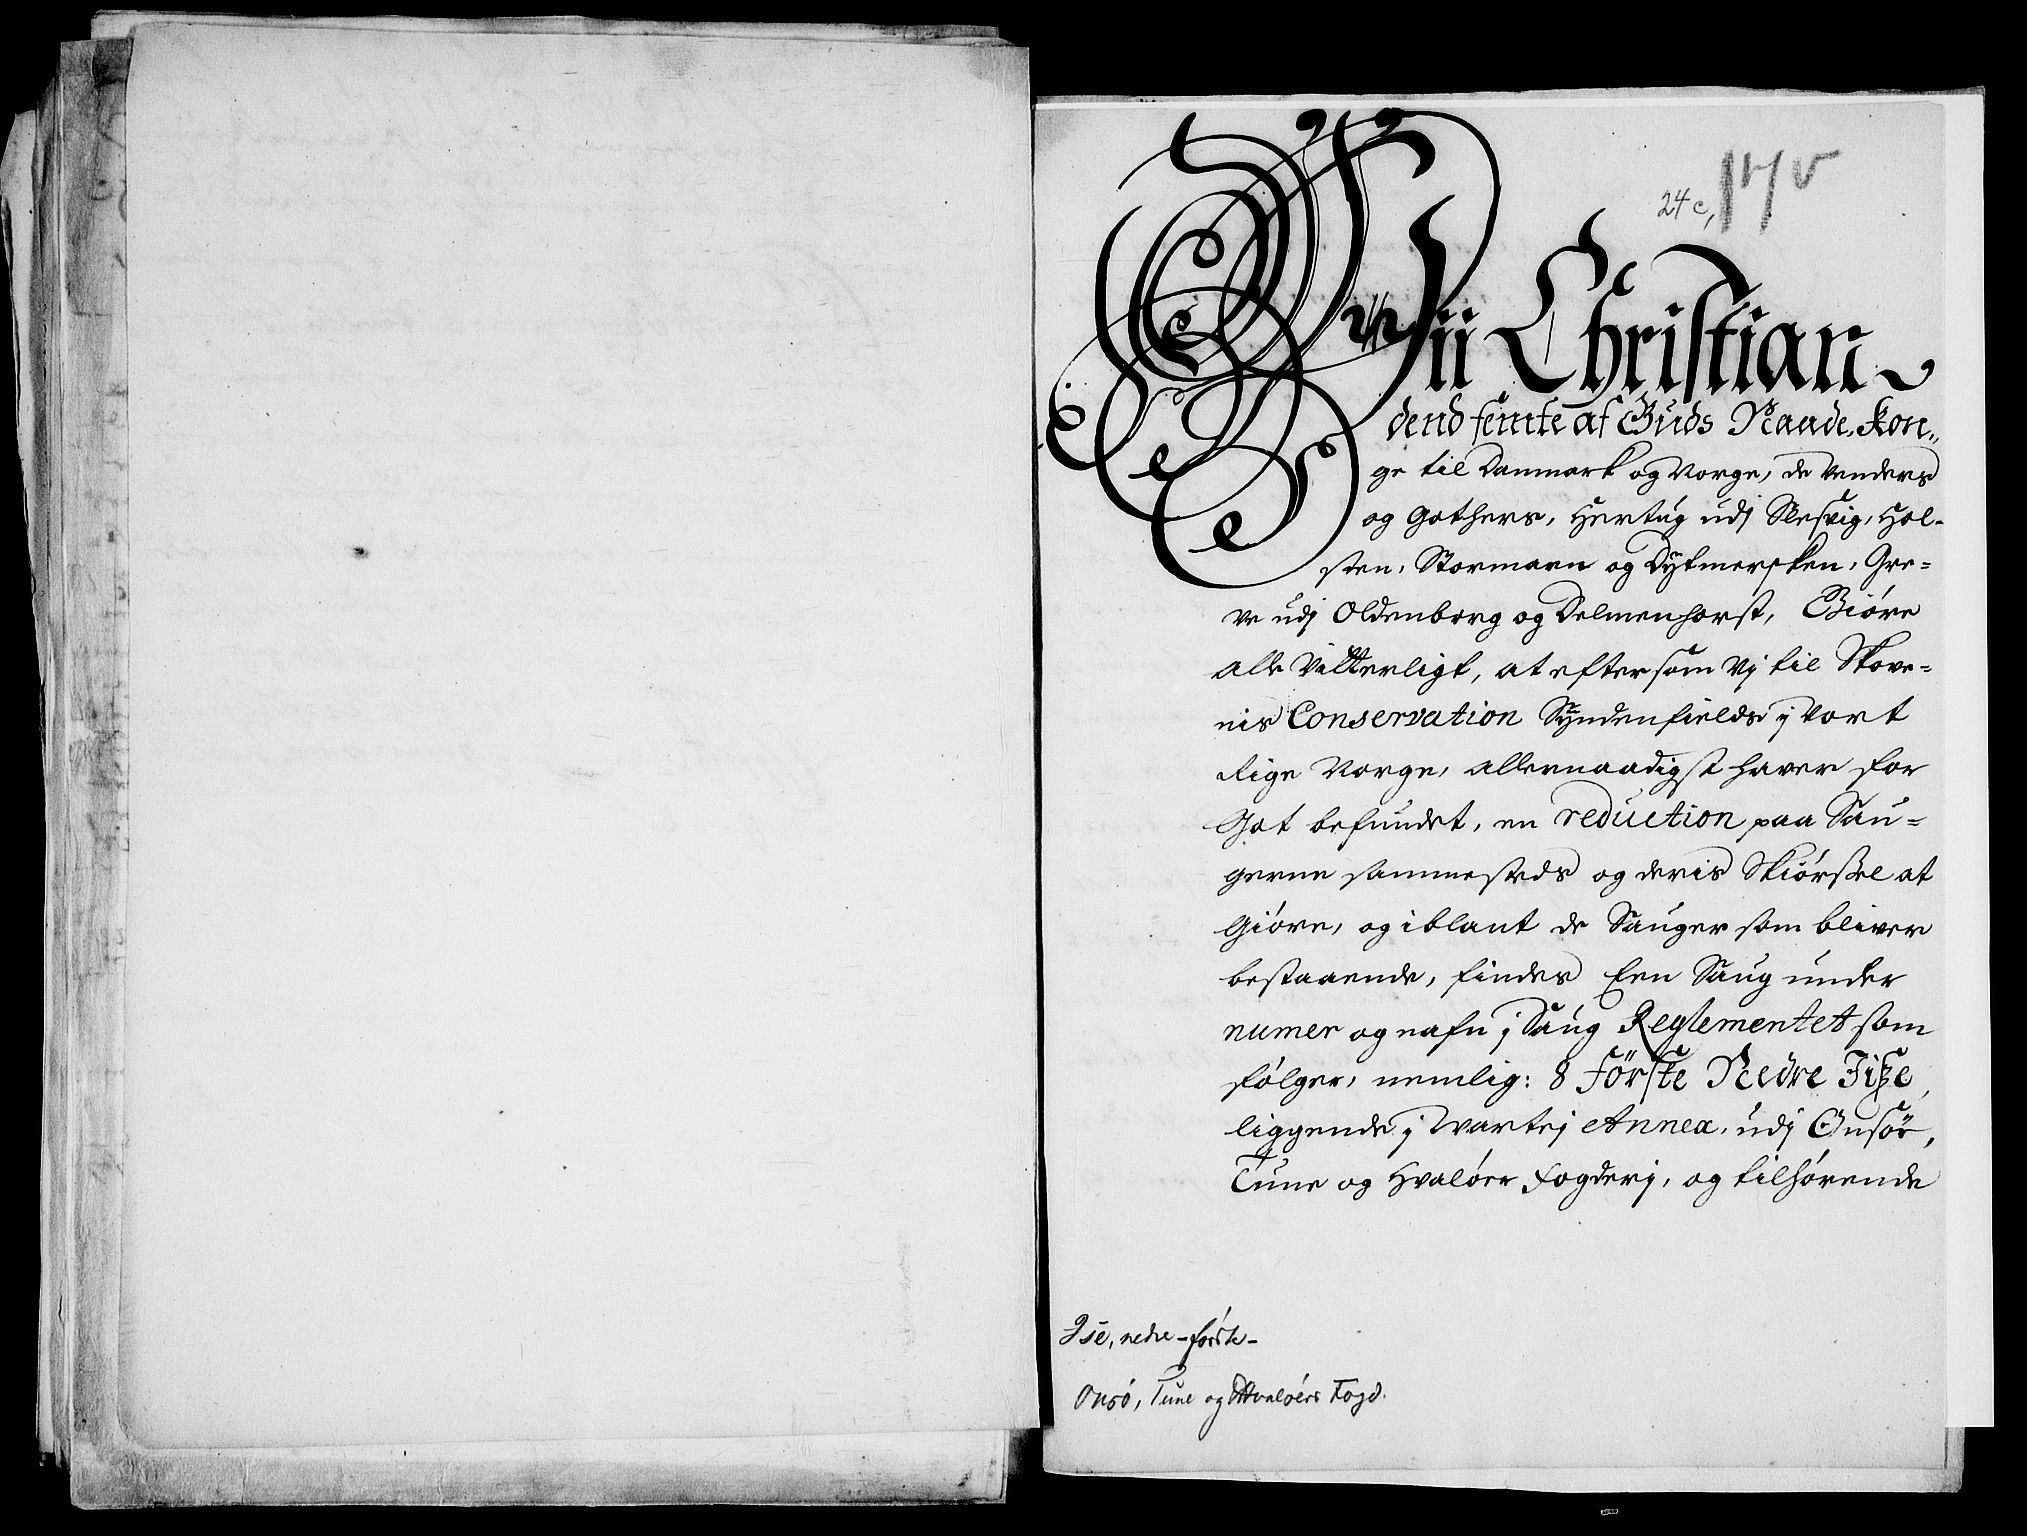 24 c,
Wii Christian
dend femte af Guds Naade, Kon„
ge til Danmark og Norge, de Venders
og Gothers, Hertug udj Slesvig, Hol-
sten, Stormarn og Dytmersken, Gre=
ve udj Oldenborg og Delmenhorst, Giöre
alle Vitterligt, at eftersom Vj til Skove=
nis Conservation Syndenfields j vort
Rige Norge, allernaadigst haver for
Got befundet, en reduction paa Sau=
gerne sammesteds og deris Skiörsel at
Giöre, og iblant de Sauger som bliver
bestaaende, findes Een Saug under
numer og nafn j Saug Reglementet som
fölger, nemlig: 8 förste Nedre Jiße,
liggende j Wartej Annex, udj Onsöe,
Tune og Hvalöer Fogderj, og tilhörende
Ise, nedre - förste -
Onsö, Tune og Hvalöers Fogd.